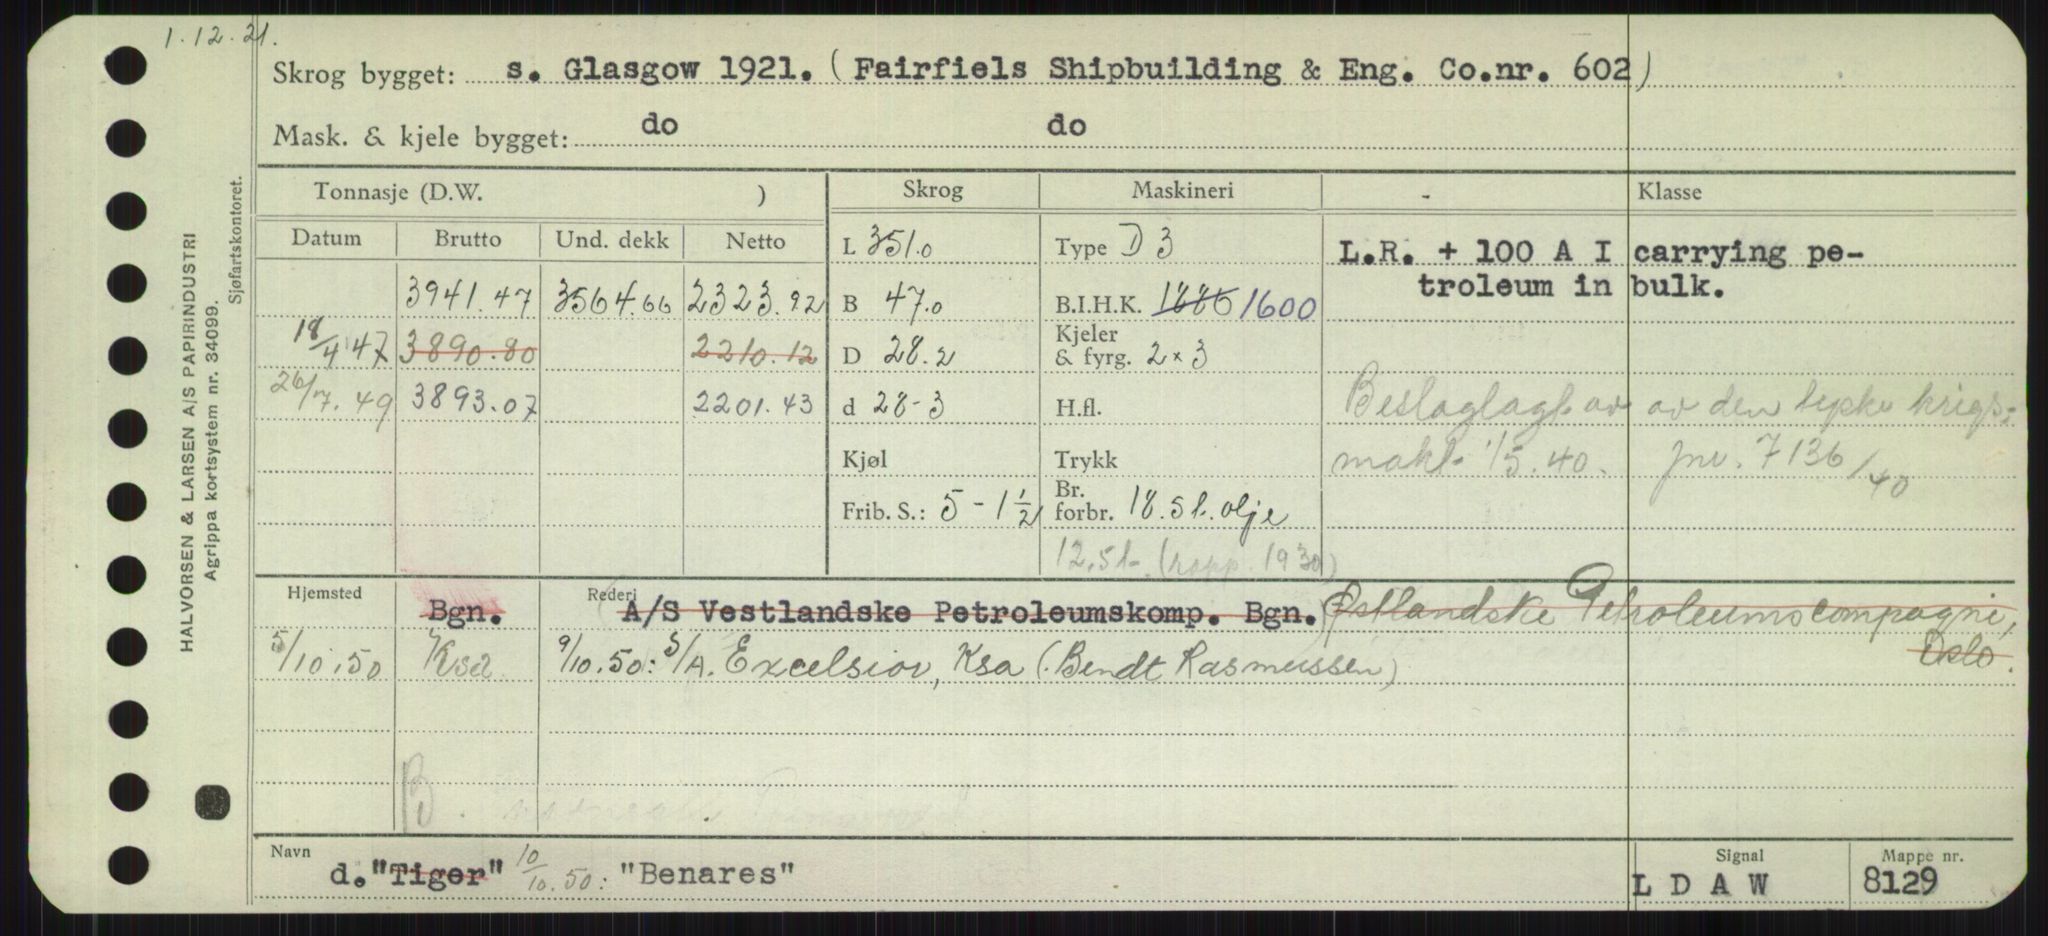 1.12.21.
Skrog bygget: s. Glasgow 1921. (Fairfiels Shipbuilding & Eng. Co.nr. 602)
Mask. & kjele bygget: do do
HALVORSEN & LARSEN A/S PAPIRINDUSTRI
Agrippa kortsystem nr. 34099.
Sjøfartskontoret.
Tonnasje (D.W. ) Skrog Maskineri - Klasse
Datum Brutto Und. dekk Netto
L 351.0 Type D 3 L.R. + 100 A I carrying pe-
troleum in bulk.
3941.47 3564.66 2323.92 B 47.0 B.I.H.K. 1886 1600
18/4 47 3890.80 2210.12 D 28.2 Kjeler & fyrg. 2 x 3
26/7.49 3893.07 2201.43 d 28-3 H.fl. Beslaglagt av av den tyske krigs-
Kjøl Trykk makt 1/5.40. jnr. 7136/40
Frib. S.: 5 - 1 1/2 Br. forbr. 18.5 t. olje
12,5 t. (rapp. 1930)
Hjemsted Rederi
Bgn. A/S Vestlandske Petroleumskomp. Bgn. (Østlandske Petroleumscompagni,
Oslo.
5/10.50 Ksa 9/10.50: S/A. Excelsior, Ksa (Bendt Rasmussen)
B
Navn Signal Mappe nr.
d. "Tiger" 10/10.50: "Benares" L D A W 8129